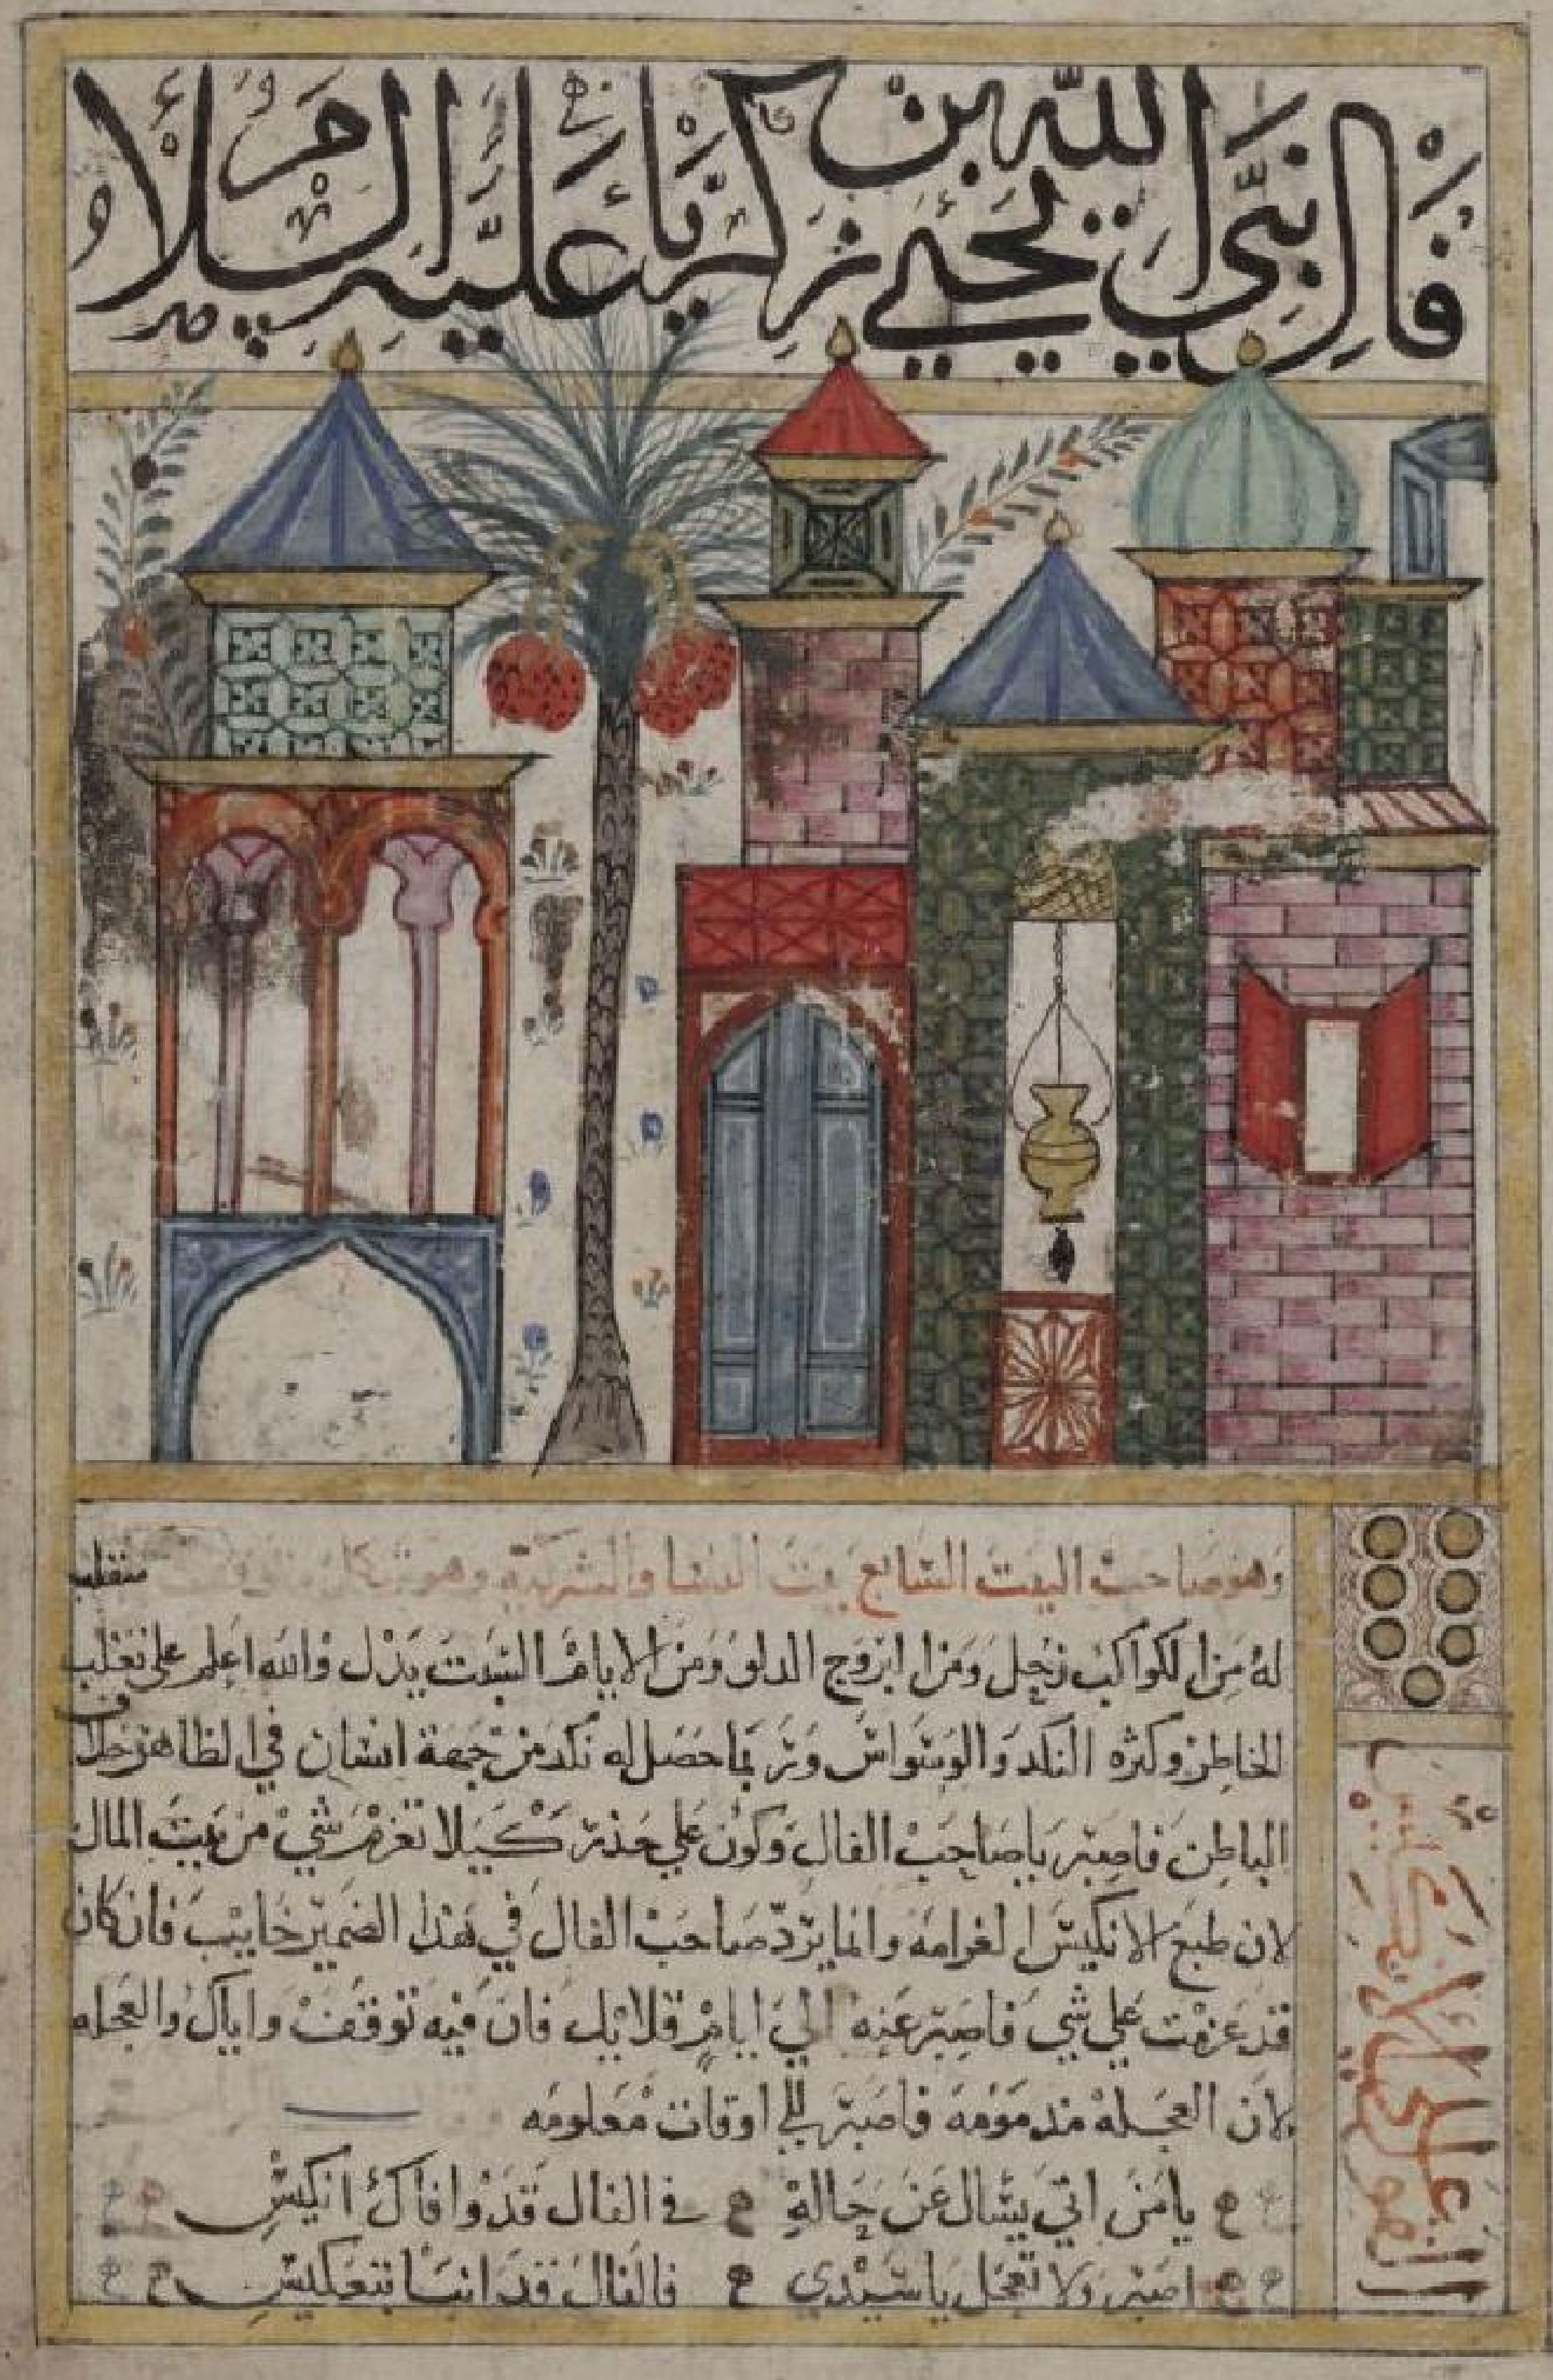 فال نبي الله يحيى بن زكرياء عليه السلام
وهو صاحب البيت السابع بيت النسا والشركة وهو شكل منقلب
له من الكواكب زحل ومن الابروج الدلو ومن الايام السبت يدل والله اعلم على تقلب
الخاطر وكثره النكد والوسواس وربما حصل له نكد من جهة انسان في الظاهر خلاف
الباطن فاصبر يا صاحب الفال وكون على حذر كبيلا تغرم شي من بيت المال
لان طبع الانكيس الغرامه وانما يرد صاحب الفال في هذا الضمير خايب فان كان
قد عزمت على شي فاصبر عنه الي ايام قلايل فان فيه توقف واياك والعجله
لان العجله مذمومه فاصبر الي اوقات معلومه
يا من اتي يسال عن حالهِ في الفال قد وافاك انكيس
اصبر ولا تعجل يا سيدي فالفال قد انبا بتعكيس
القول على الانكيس